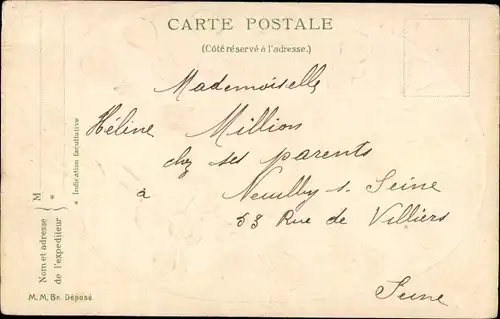 CARTE POSTALE
(Côté réservé à l'adresse.)
Mademoiselle
Héline Million
chez ses parents
à Neuilly s. Seine
53 Rue de Villiers
Seine
Nom et adresse de l'expéditeur } M *
* Indication facultative
M. M. Br. Déposé